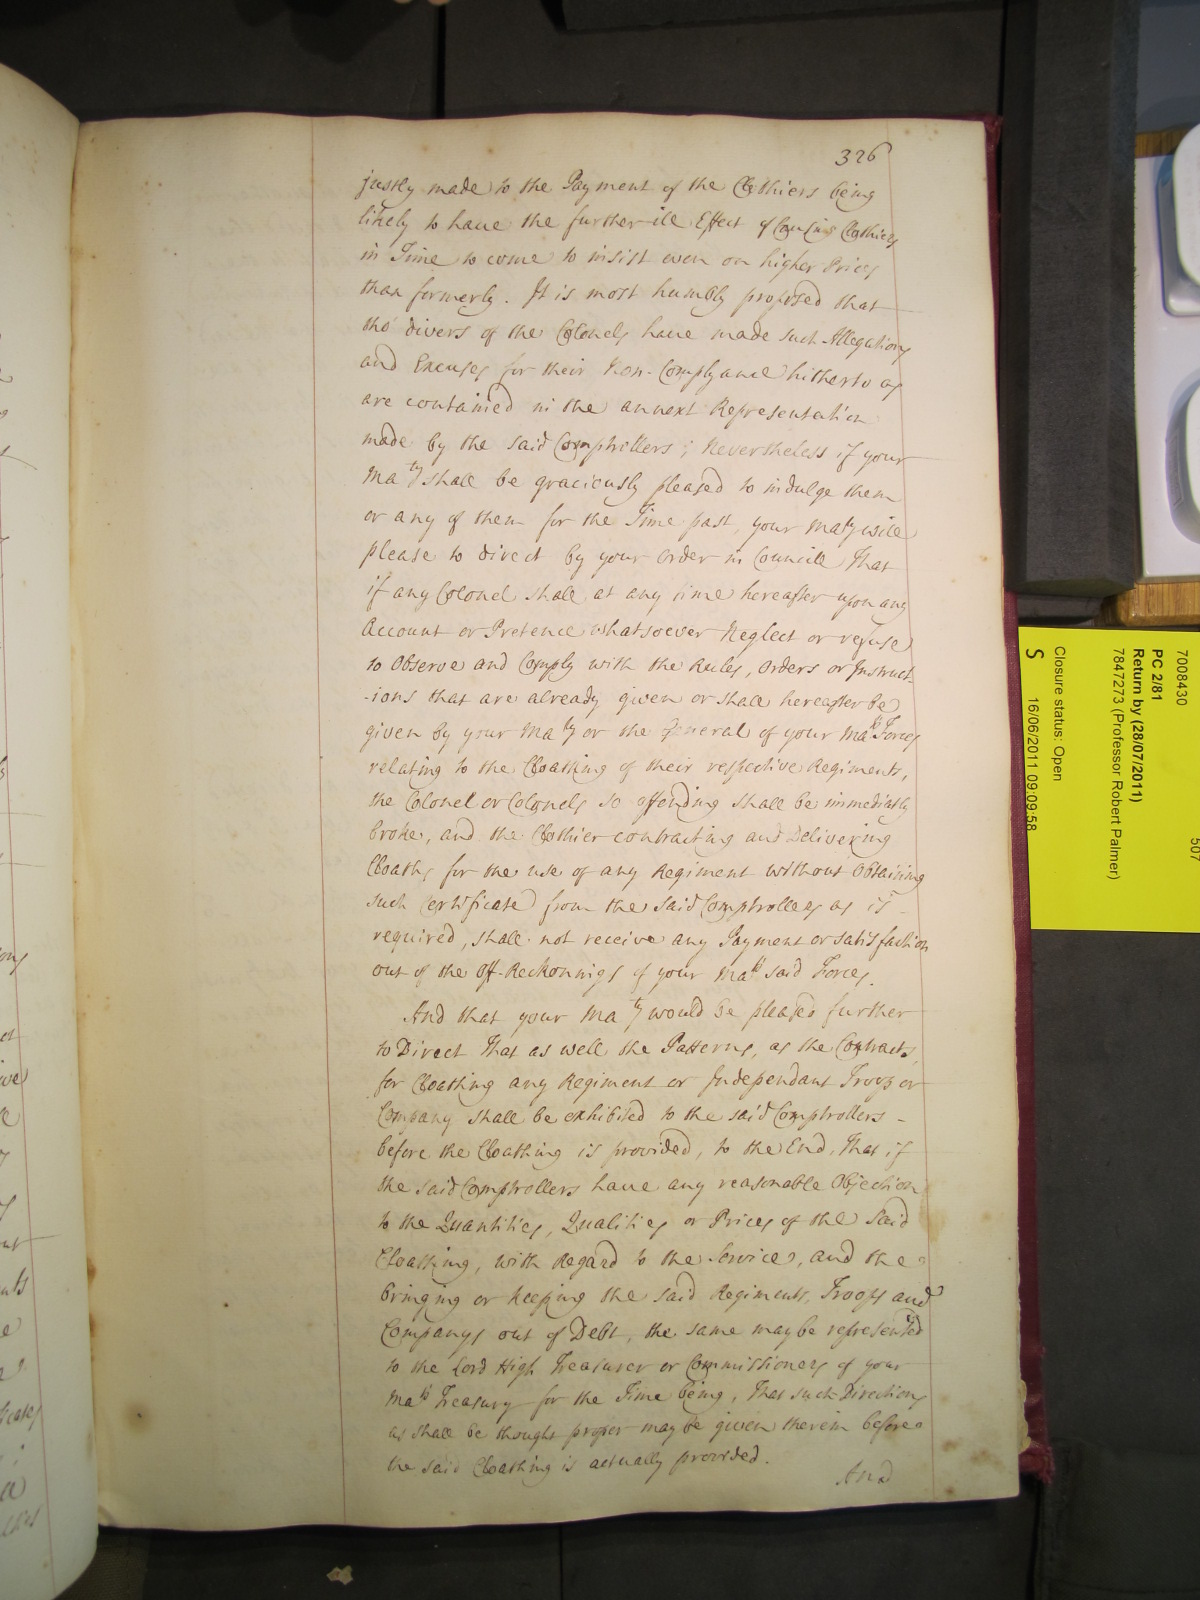 326
justly made to the Payment of the Clothiers being
likely to haue the further ill Effect of Causing Clothiers
in Time to come to insist even on higher Prices
than formerly. It is most humbly proposed that
tho' divers of the Colonels haue made such Allegations
and Excuses for their Non-Complyance hitherto as
are contained in the annext Representation
made by the said Comptrollers; Nevertheless if your
Maty shall be graciously pleased to indulge them
or any of them for the Time past, your Maty will
please to direct by your Order in Councill That
if any Colonel shall at any time hereafter upon any
Account or Pretence whatsoever Neglect or refuse
to Observe and Comply with the Rules, Orders or Instruct-
-ions that are already given or shall hereafter be
given by your Maty or the General of your Mats Forces
relating to the Cloathing of their respective Regiments,
the Colonel or Colonels so offending shall be immediatly
broke, and the Clothier contracting and Delivering
Cloaths for the use of any Regiment without Obtaining
such Certificate from the said Comptrollers as is
required, shall not receive any Payment or satisfaction
out of the Off-Reckonnigs of your Mats said Forces.
And that your Maty would be pleased further
to Direct That as well the Patterns, as the Contracts,
for Cloathing any Regiment or Independant Troop or
Company shall be exhibited to the said Comptrollers -
before the Cloathing is provided, to the End, That if
the said Comptrollers haue any reasonable Objection
to the Quantities, Qualities or Prices of the said
Cloathing, with Regard to the Service, and the
bringing or keeping the said Regiments, Troops and
Companys out of Debt, the same may be represented
to the Lord High Treasurer or Commissioners of your
Mats Treasury for the Time being, That such Directions
as shall be thought proper may be given therein before
the said Cloathing is actually provided.
And
7008430
507
PC 2/81
Return by (28/07/2011)
7847273 (Professor Robert Palmer)
Closure status: Open
S 16/06/2011 09:09:58